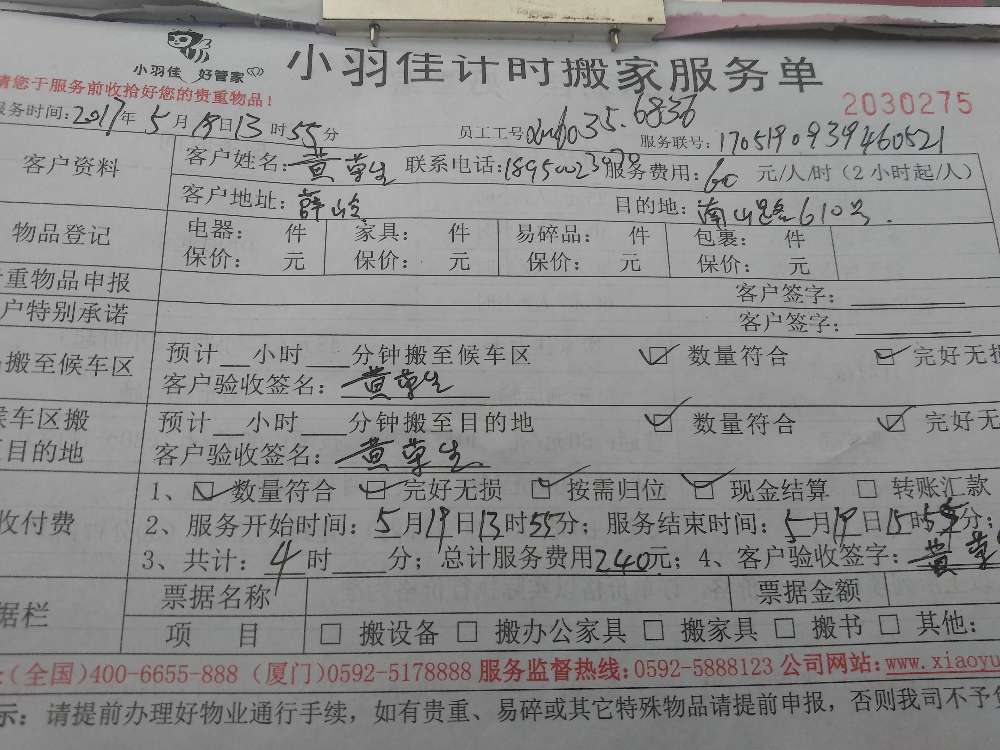 小羽佳 好管家
小羽佳计时搬家服务单
请您于服务前收拾好您的贵重物品！
2030275
服务时间：2017年5月19日13时55分 员工工号 035.6836 服务联号：1705190939460521
客户资料
客户姓名：黄草生 联系电话： 服务费用：60元/人/时（2小时起/人）
客户地址：薛岭 目的地：南山路610号.
物品登记
电器： 件 家具： 件 易碎品： 件 包裹： 件
保价： 元 保价： 元 保价： 元 保价： 元
重物品申报 客户签字：
户特别承诺 客户签字：
搬至候车区
预计__小时___分钟搬至候车区 ☑ 数量符合 ☑ 完好无损
客户验收签名：黄草生
候车区搬
至目的地
预计__小时___分钟搬至目的地 ☑ 数量符合 ☑ 完好无
客户验收签名：黄草生
收付费
1、☑ 数量符合 ☑ 完好无损 ☑ 按需归位 ☑ 现金结算 □ 转账汇款
2、服务开始时间：5月19日13时55分；服务结束时间：5月19日15时55分；
3、共计：4时____分；总计服务费用240元；4、客户验收签字：黄草
据栏
票据名称 票据金额
项 目 □ 搬设备 □ 搬办公家具 □ 搬家具 □ 搬书 □ 其他：
：(全国)400-6655-888（厦门)0592-5178888 服务监督热线：0592-5888123 公司网站：www.xiaoyu
示：请提前办理好物业通行手续，如有贵重、易碎或其它特殊物品请提前申报，否则我司不予